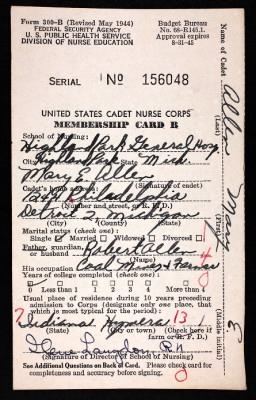 Form 300-B (Revised May 1944)
FEDERAL SECURITY AGENCY
U. S. PUBLIC HEALTH SERVICE
DIVISION OF NURSE EDUCATION
Budget Bureau
No. 68-R145.1.
Approval expires
8-31-45
SERIAL No 156048
UNITED STATES CADET NURSE CORPS
MEMBERSHIP CARD B
School of Nursing:
Highland Park General Hosp
Highland Park Mich.
City (State)
Mary E. Allen
Cadet's home address: (Signature of cadet)
Philadelphia
(Number and street, or R. F. D.)
Detroit 2, Michigan
(City) (County) (State)
Marital status (check one):
Single Married Widowed Divorced
Father, guardian,
or husband Robert Allen
(Name)
His occupation Coal Farmer
Years of college completed (check one):
0 Less than 1 1 2 3 4 More than 4
Usual place of residence during 10 years preceding
admission to Corps (designate only one place, that
which is most typical for the period):
Indiana Hymera 13
(State) (County) (City) (Check here if
farm or R. F. D.)
Langdon R.N.
(Signature of Director of School of Nursing)
See Additional Questions on Back of Card. Please check for
completeness and accuracy before signing.
Name of Cadet
Allen Mary E
(Last) (First) (Middle initial)